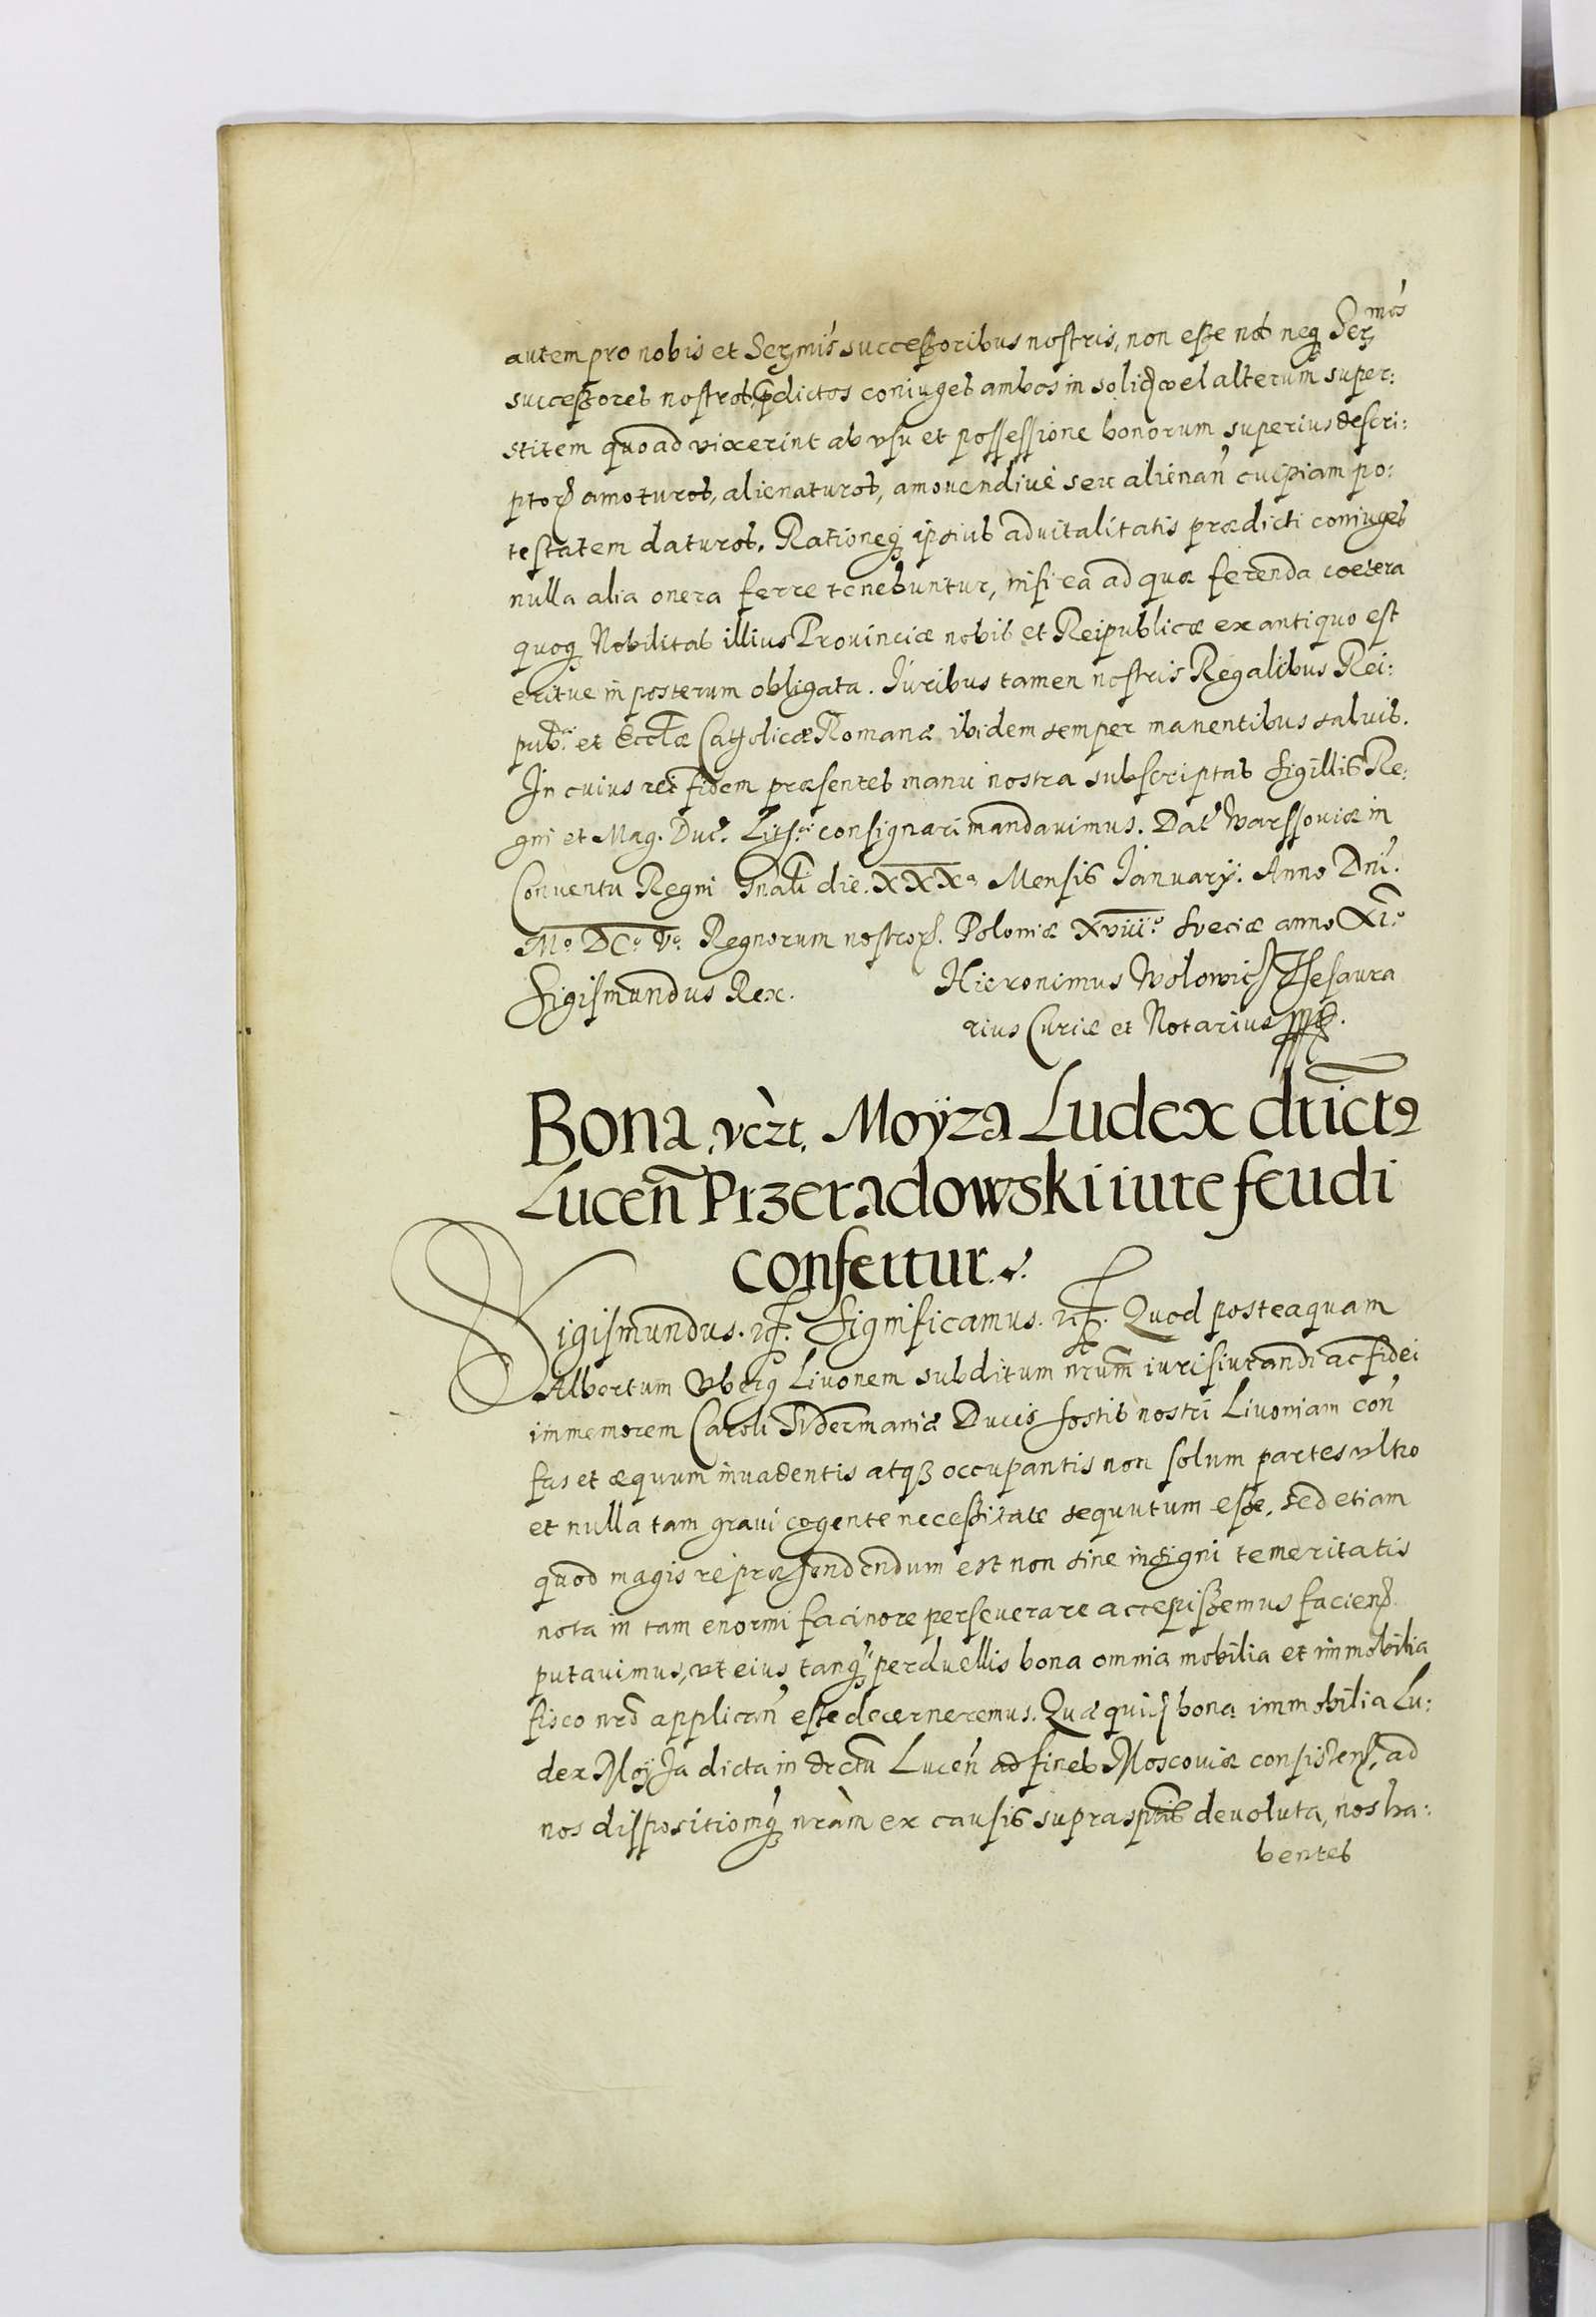 autem pro nobis et Serz̃mis successoribus nostris, non esse nos neq3 Serz̃mos
successores nostros, p̃dictos coniuges ambos in solid̃ vel alterum super:
stitem quoad vixerint ab vsu et possessione bonorum superius descri:
ptor̃ amoturos, alienaturos, amouendiue seu alienañ cuipiam po:
testatem daturos. Rationeq3 ipsius aduitalitatis prædicti coniuges
nulla alia onera ferre tenebuntur, nisi ea ad quæ ferenda coetera
quoq3 Nobilitas illius Prouinciæ nobis et Reipublicæ ex antiquo est
eritue in posterum obligata. Iuribus tamen nostris Regalibus Rei:
pub:cæ et Eccl̃æ Catholicæ Romanæ ibidem semper manentibus saluis.
In cuius rei fidem præsentes manu nostra subscriptas sigillis Re:
gni et Mag. Duc. Lith:æ consignari mandauimus. Dat̃ Warssouiæ in
Conuentu Regni Gnali die. XXXa Mensis Ianuarÿ. Anno Dni.
Mo. DCo. Vo. Regnorum nostror̃. Poloniæ XVIIIo. Sveciæ anno XIo.
Sigismundus Rex. Hieronimus Wolowicz Thesaura
rius Curiæ et Notarius
Bona, vezt, Moÿza Ludex dtict9
Luceñ Przeradowski iure feudi
confertur.
Sigismundus. etc. Significamus. etc. Quod posteaquam
Albertum Vberg Liuonem subditum nrum̃ iurisiurandi ac fidei
immemorem Caroli Sudermaniæ Ducis hostis nostri Liuoniam coñ
fas et æquum inuadentis atq3 occupantis non solum partes vltro
et nulla tam graui cogente necessitate sequutum esse, sed etiam
quod magis repræhendendum est non sine insigni temeritatis
nota in tam enormi facinore perseuerare accepissemus faciend̃
putauimus, vt eius tanq3 perduellis bona omnia mobilia et immobilia
fisco nrõ applicañ esse decerneremus. Quæ quid̃ bona immobilia Lu:
dex Moÿza dicta in drctu Luceñ ad fines Moscouiæ consisteñ, ad
nos dispositionq3 nràm ex causis suprasptis deuoluta, nos ha:
bentes